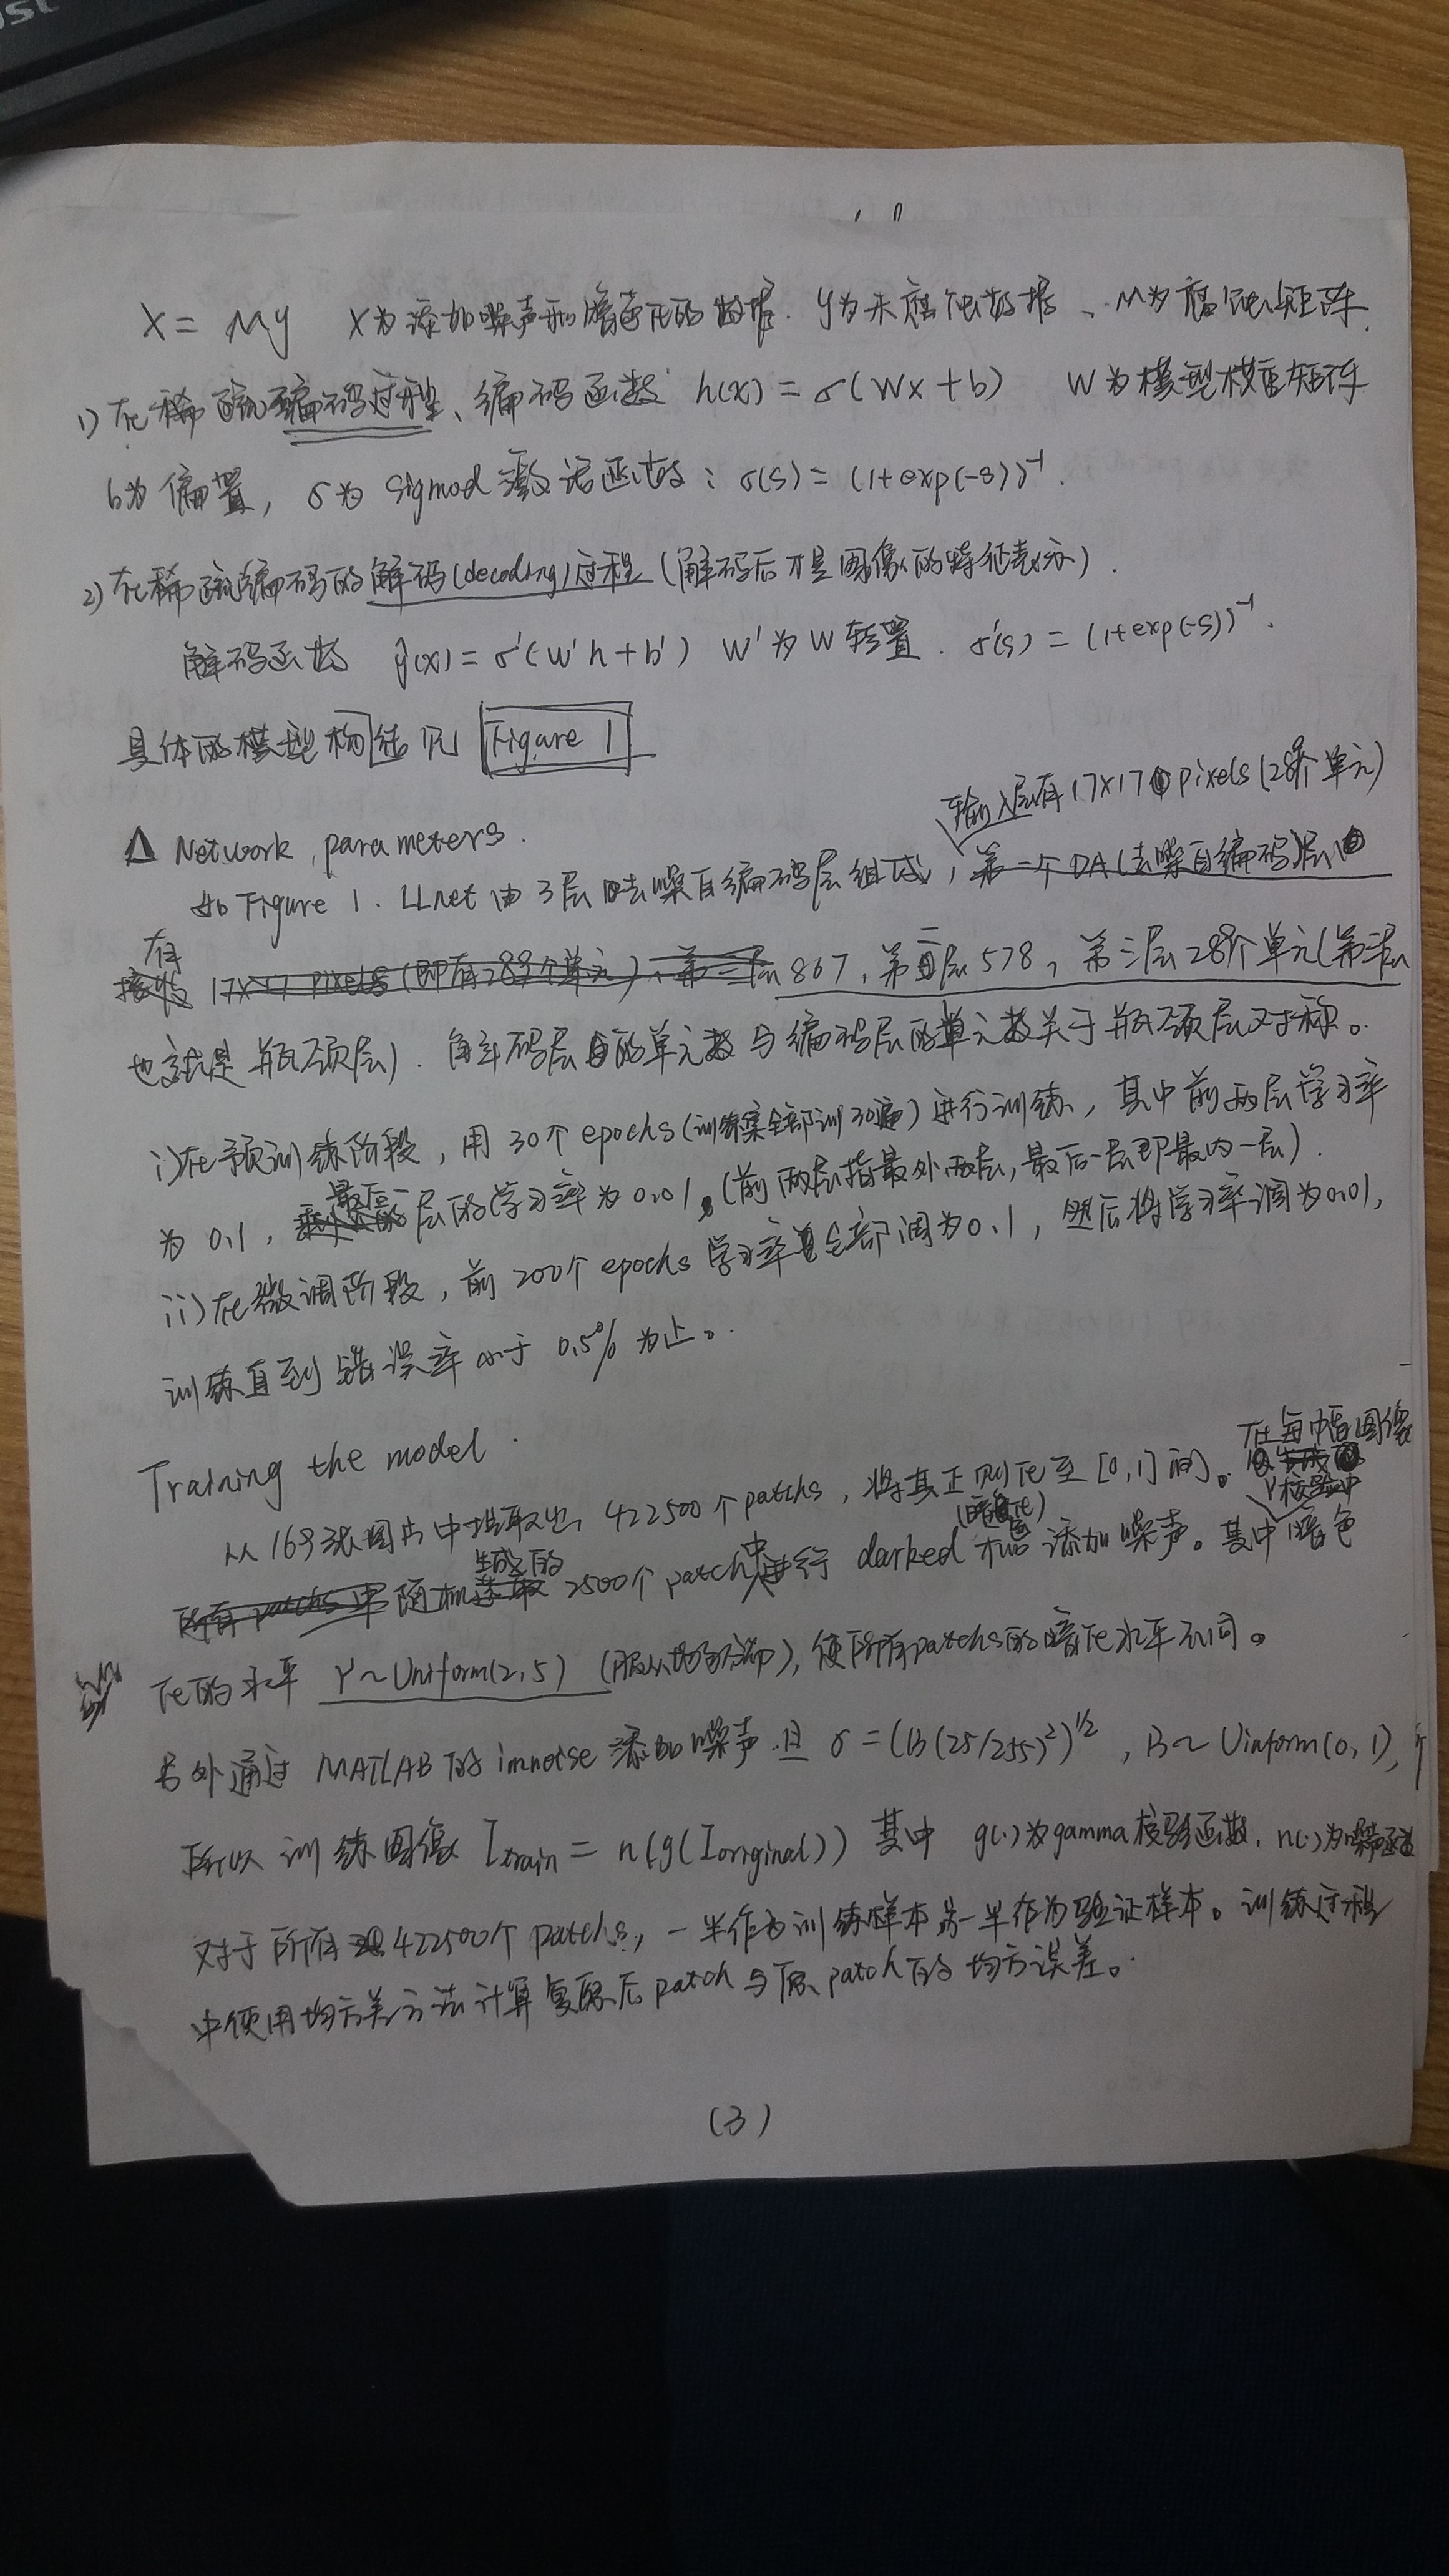 X = My X为添加噪声和暗色化的数据. y为未腐蚀数据、M为腐蚀矩阵.
1) 在稀疏编码过程、编码函数 h(x) = σ(Wx+b) W为模型权重矩阵
b为偏置, σ为 sigmod 激活函数: σ(s) = (1+exp(-s))⁻¹.
2) 在稀疏编码的解码(decoding)过程(解码后才是图像的特征表示).
解码函数 ŷ(x) = σ'(W'h+b') W'为W转置. σ'(s) = (1+exp(-s))⁻¹.
具体的模型构造见 Figure 1
输入层有17×17 pixels(289个单元)
Δ Network parameters.
如 Figure 1. LLnet由3层去噪自编码层组成, 第一个DA(去噪自编码)层
有 867, 第二层578, 第三层289个单元(第三层
也就是瓶颈层). 解码层的单元数与编码层的单元数关于瓶颈层对称。
i)在预训练阶段, 用30个epochs(训练集全部训30遍)进行训练, 其中前两层学习率
为0.1, 最后一层的学习率为0.01。(前两层指最外两层, 最后一层即最内一层).
ii)在微调阶段, 前200个epochs学习率全部调为0.1, 然后将学习率调为0.01,
训练直到错误率小于0.5%为止。
Training the model.
从169张图片中提取出422500个patchs, 将其正则化至[0,1]间。在每幅图像
随机生成的2500个patch中进行darked(暗色化)和添加噪声。其中暗色
化的水平 γ~Uniform(2,5) (服从均匀分布), 使所有patchs的暗化水平不同。
另外通过MATLAB的imnoise添加噪声.且 σ = (B(25/255)²)^1/2, B~Uinform(0,1),
所以训练图像 Itrain = n(g(Ioriginal)) 其中 g(·)为gamma校验函数, n(·)为噪声函数
对于所有422500个patchs, 一半作为训练样本另一半作为验证样本。训练过程
中使用均方差方法计算复原后patch与原patch的均方误差。
(3)